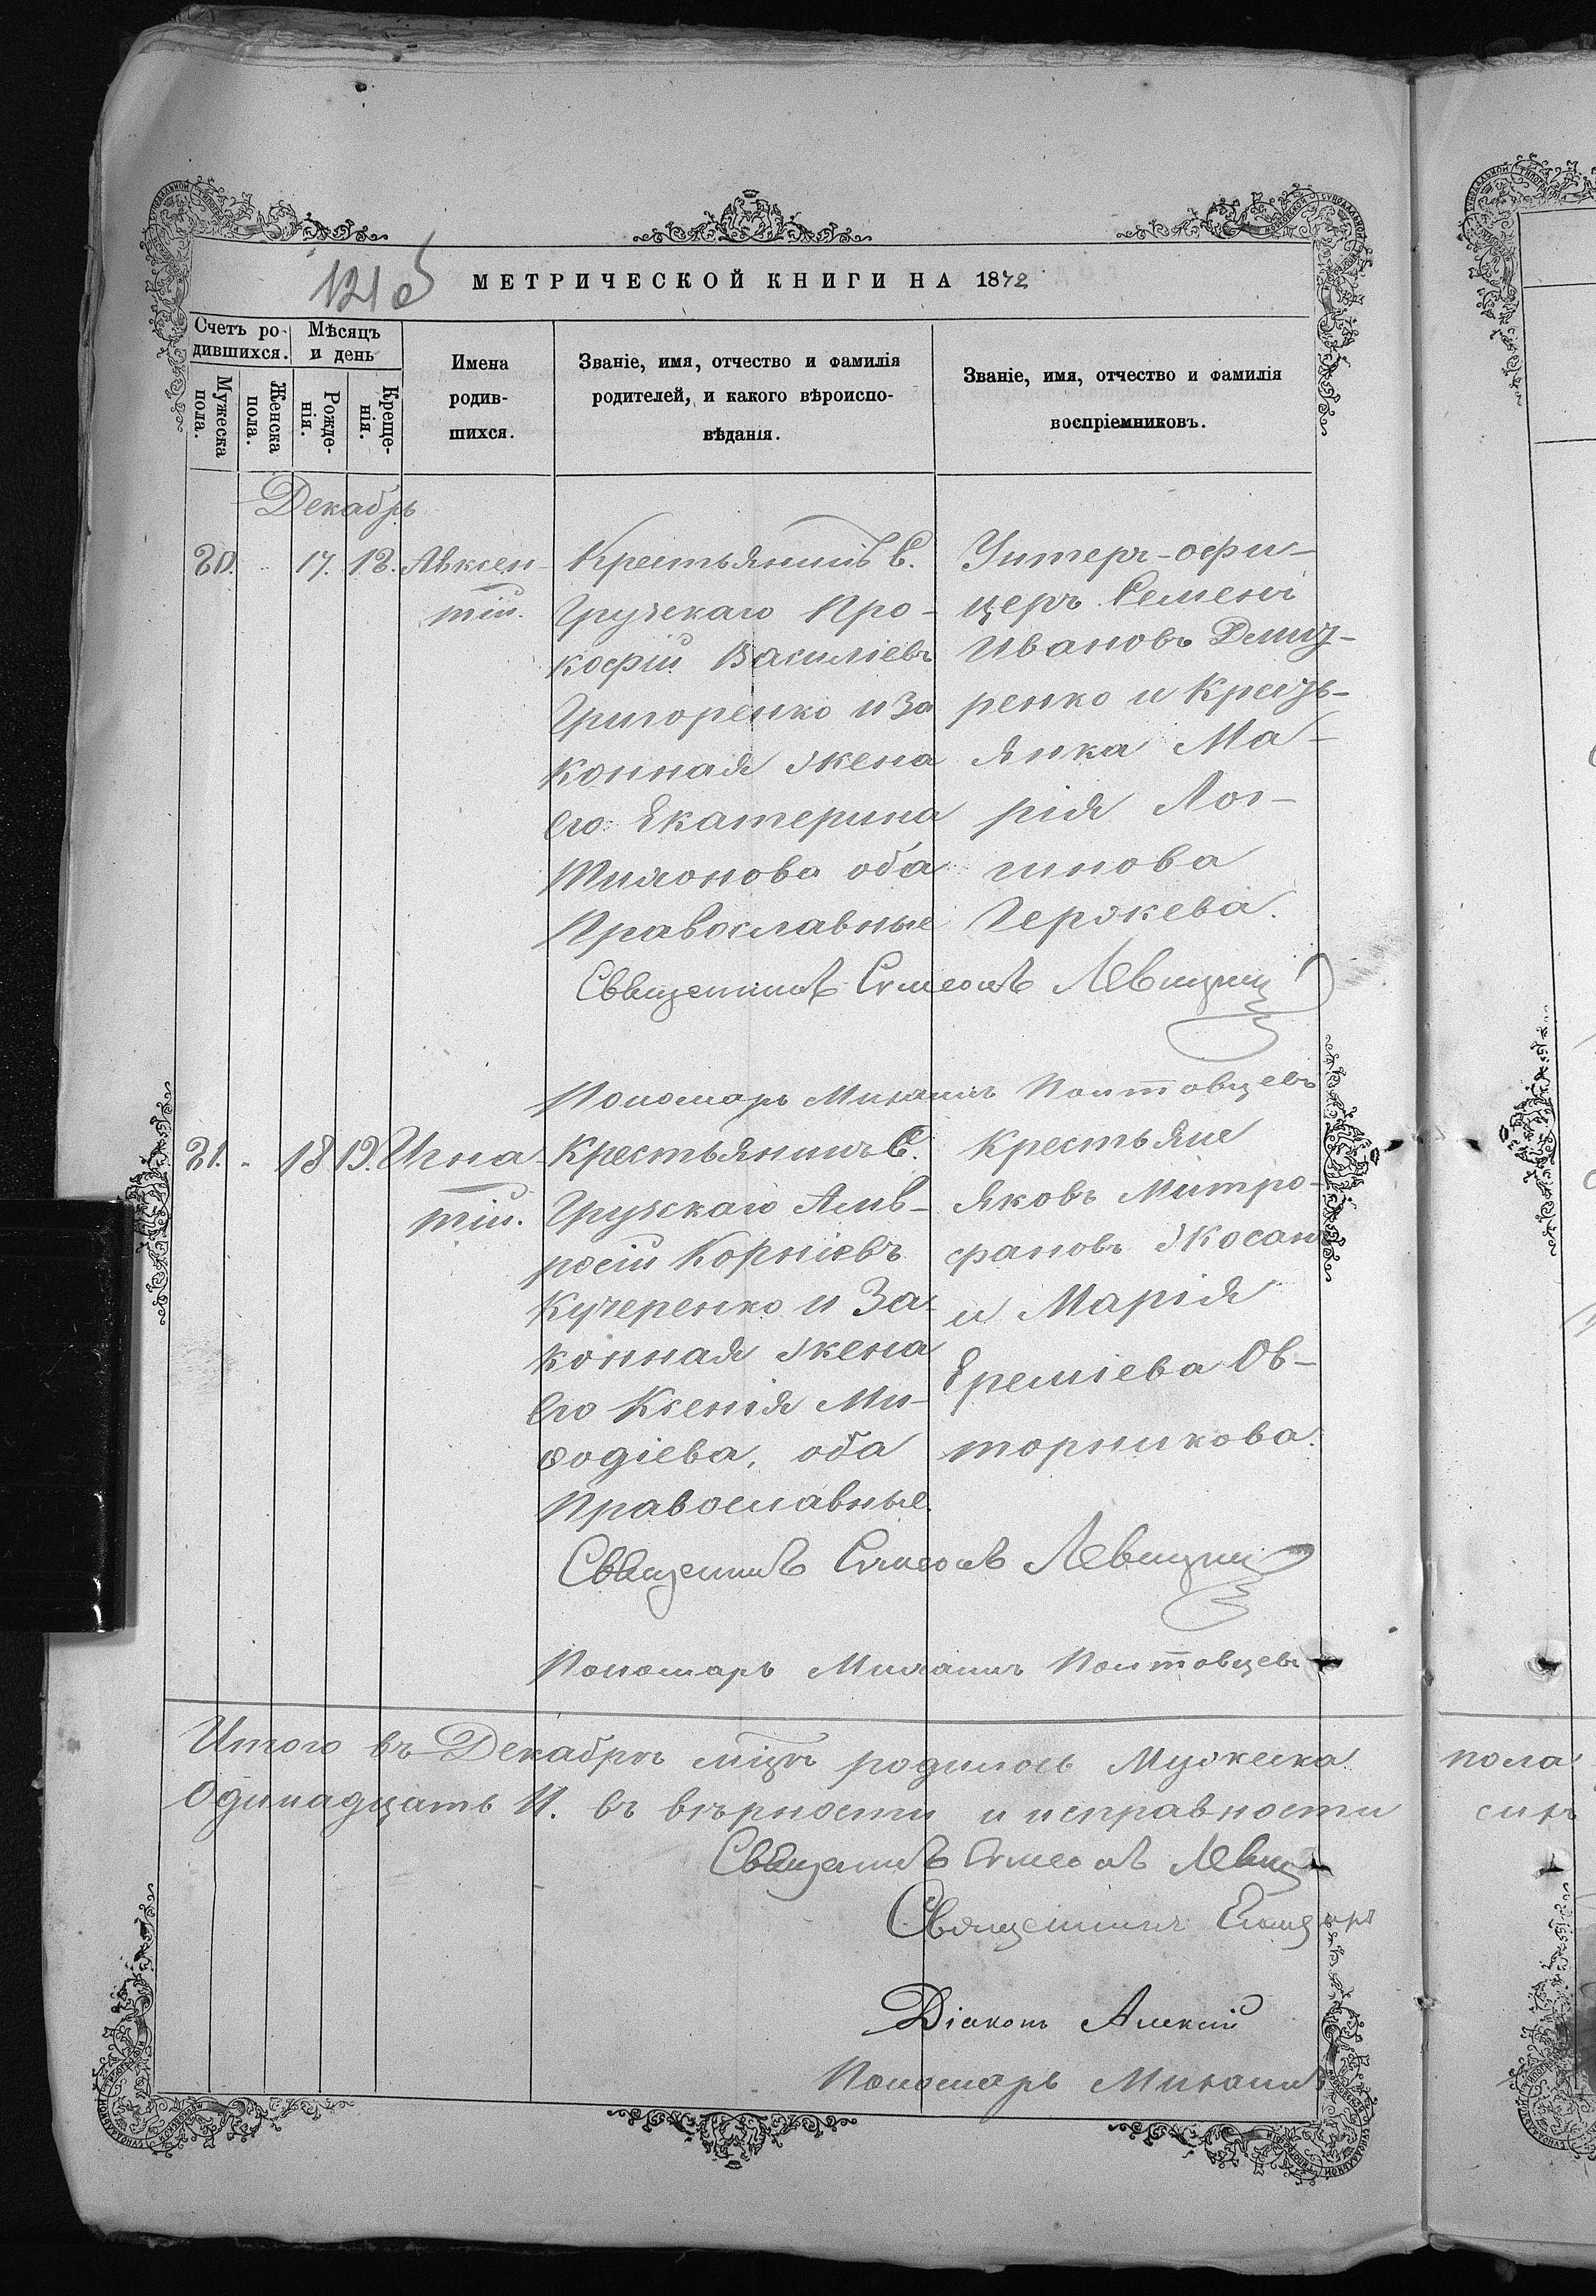 121 об
МЕТРИЧЕСКОЙ КНИГИ НА 1872
Счетъ родившихся.
Мѣсяцъ и день
Мужеска пола.
Женска пола.
Рожденія.
Крещенія.
Имена
родив-
шихся.
Званіе, имя, отчество и фамилія
родителей, и какого вѣроиспо-
вѣданія.
Званіе, имя, отчество и фамилія
воспріемниковъ.
Декабрь
20. 17. 18. Авксен-
тій.
Крестьянинъ С.
Грузскаго Про-
кофій Василіевъ
Григоренко и За
конная жена
его Екатерина
Тихонова оба
Православные
Унтеръ-офи-
церъ Семенъ
Ивановъ
ренко и Кресть-
янка Ма-
рія Лог-
гинова
Гержева.
Священникъ Симеонъ Левицкій
Пономарь Михаилъ Полтовцевъ
21. 18 19. Игна
тій.
Крестьянинъ С.
Грузскаго Амв-
росій Корніевъ
Кучеренко и За-
конная жена
его Ксенія Ми-
ѳодіева, оба
Православные.
Крестьяне
Яковъ Митро-
фановъ Жосан
и Марія
Ереміева Ов-
торникова.
Священникъ Симеонъ Левицкій
Пономарь Михаилъ Полтовцевъ
Итого въ Декабрѣ мцѣ родилось Мужеска пола
Одинадцать 11. въ вѣрности и исправности сихъ
Священникъ Симеонъ Левиц
Священникъ
Діаконъ Алексій
Пономарь Михаилъ